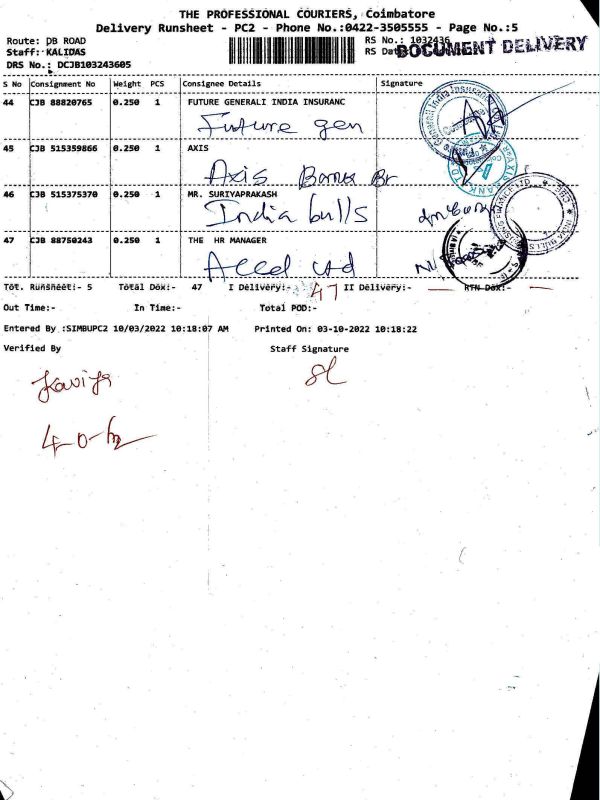 THE PROFESSIONAL COURIERS, Coimbatore
Delivery Runsheet - PC2 - Phone No.:0422-3505555 - Page No.:5
Route: DB ROAD
RS No.: 1032436
Staff: KALIDAS
RS Dat
DOCUMENT DELIVERY
DRS No.: DCJB103243605
S No Consignment No Weight PCS Consignee Details Signature
44 CJB 88820765 0.250 1 FUTURE GENERALI INDIA INSURANC
Future gen
45 CJB 515359866 0.250 1 AXIS
Axis Bank Br
46 CJB 515375370 0.250 1 MR. SURIYAPRAKASH
India bulls
47 CJB 88750243 0.250 1 THE HR MANAGER
Tot. Runsheet:- 5 Total Dox:- 47 I Delivery:- 47 II Delivery:- — RTN Dox:- —
Out Time:- In Time:- Total POD:-
Entered By :SIMBUPC2 10/03/2022 10:18:07 AM Printed On: 03-10-2022 10:18:22
Verified By Staff Signature